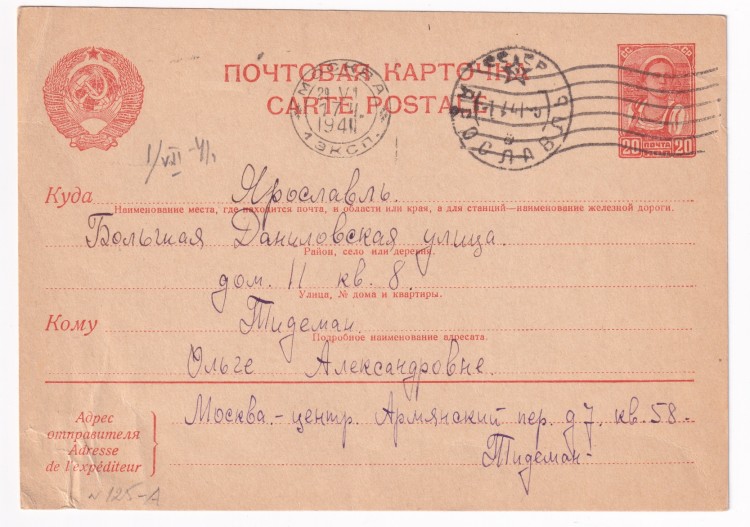 ПОЧТОВАЯ КАРТОЧКА
CARTE POSTALE
МОСКВА
1941
1 ЭКСП.
СССР
ЯРОСЛАВЛЬ
ПОЧТА
20 20
1/VII-41.
Куда Ярославль.
Наименование места, где находится почта, и области или края, а для станций—наименование железной дороги.
Большая Даниловская улица.
Район, село или деревня.
дом. 11 кв. 8.
Улица, № дома и квартиры.
Кому Тидеман.
Подробное наименование адресата.
Ольге Александровне.
Адрес
отправителя
Adresse
de l'expéditeur
Москва.-центр. Армянский пер. д 7. кв. 58-
Тидеман-
№ 125-А